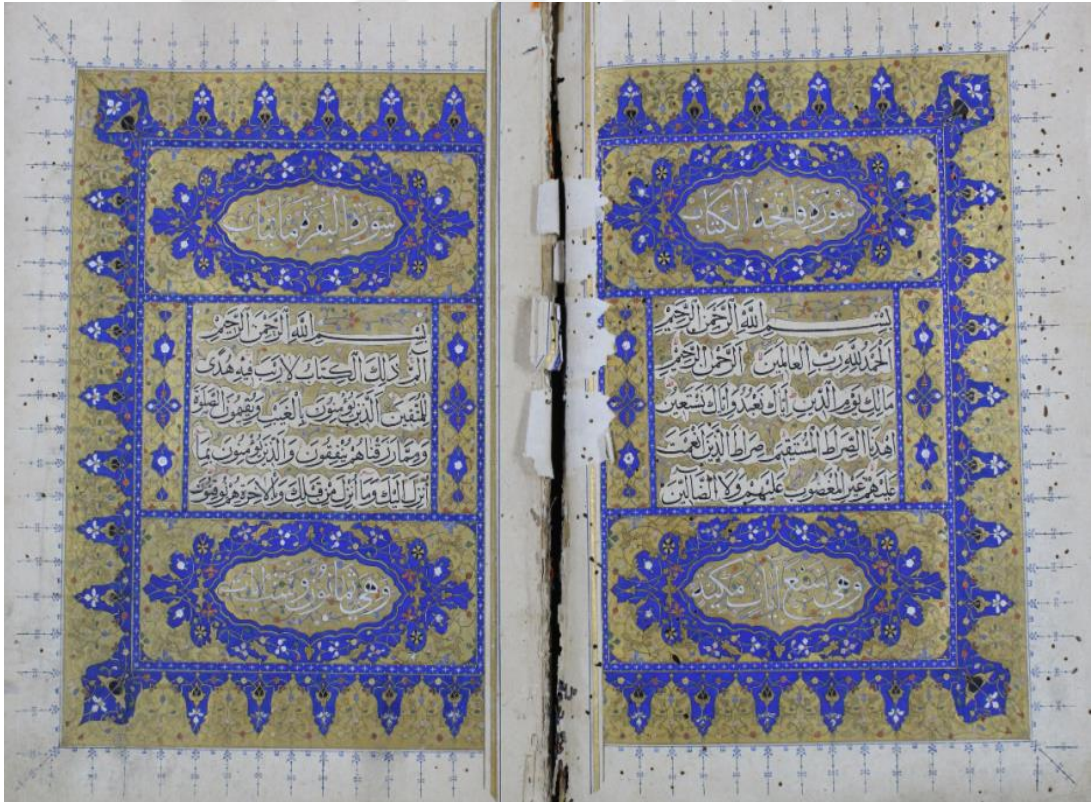 سورة فاتحة الكتاب
بسم الله الرحمن الرحيم
الحمد لله رب العالمين الرحمن الرحيم
مالك يوم الدين اياك نعبد واياك نستعين
اهدنا الصراط المستقيم صراط الذين انعمت
عليهم غير المغضوب عليهم ولا الضالين
وهي سبع آيات مكية
سورة البقرة مايتان
بسم الله الرحمن الرحيم
الم ذلك الكتاب لا ريب فيه هدى
للمتقين الذين يؤمنون بالغيب ويقيمون الصلوة
ومما رزقناهم ينفقون والذين يؤمنون بما
انزل اليك وما انزل من قبلك وبالاخرة هم يوقنون
وهي ثمانون وست ايات